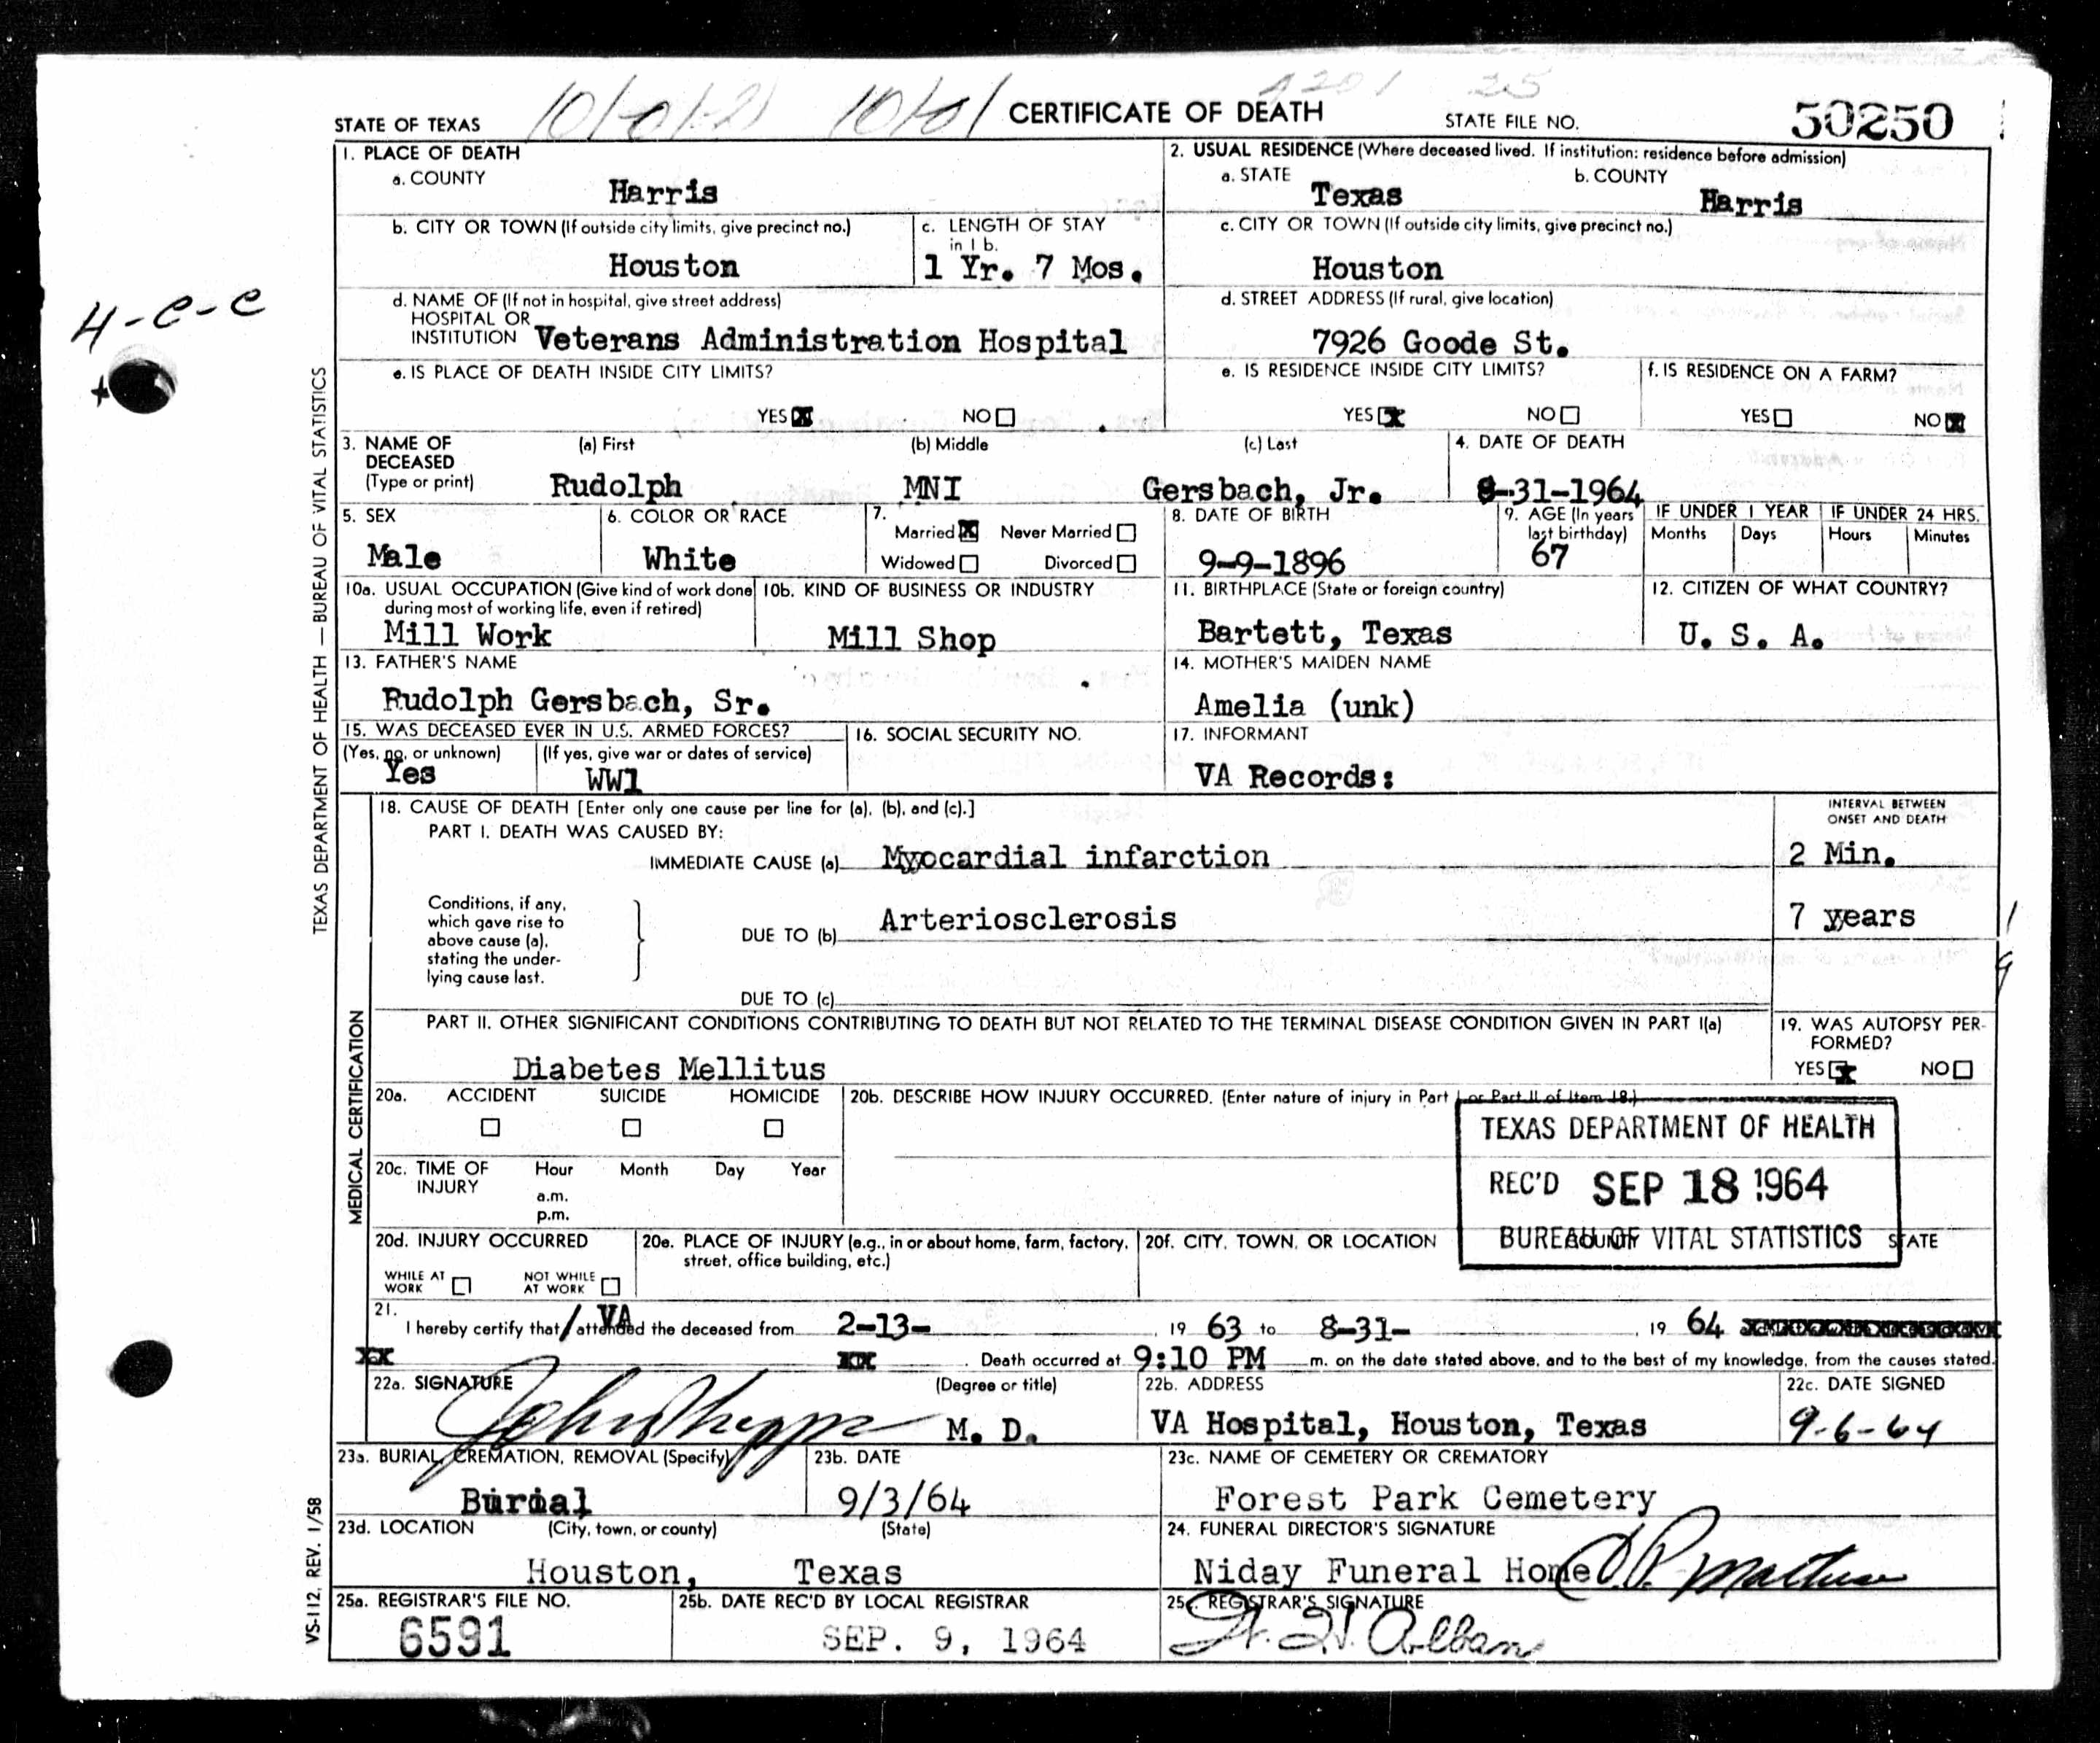 STATE OF TEXAS CERTIFICATE OF DEATH STATE FILE NO. 50250
1. PLACE OF DEATH
a. COUNTY
Harris
2. USUAL RESIDENCE (Where deceased lived. If institution: residence before admission)
a. STATE b. COUNTY
Texas Harris
b. CITY OR TOWN (If outside city limits, give precinct no.)
Houston
c. LENGTH OF STAY
in 1 b.
1 Yr. 7 Mos.
c. CITY OR TOWN (If outside city limits, give precinct no.)
Houston
4-e-e
d. NAME OF (If not in hospital, give street address)
HOSPITAL OR
INSTITUTION Veterans Administration Hospital
d. STREET ADDRESS (If rural, give location)
7926 Goode St.
e. IS PLACE OF DEATH INSIDE CITY LIMITS?
YES X NO
e. IS RESIDENCE INSIDE CITY LIMITS?
YES X NO
f. IS RESIDENCE ON A FARM?
YES NO X
3. NAME OF
DECEASED
(Type or print)
(a) First (b) Middle (c) Last
Rudolph MNI Gersbach, Jr.
4. DATE OF DEATH
8-31-1964
5. SEX
Male
6. COLOR OR RACE
White
7.
Married X Never Married
Widowed Divorced
8. DATE OF BIRTH
9-9-1896
9. AGE (In years
last birthday)
67
IF UNDER 1 YEAR
Months Days
IF UNDER 24 HRS.
Hours Minutes
10a. USUAL OCCUPATION (Give kind of work done
during most of working life, even if retired)
Mill Work
10b. KIND OF BUSINESS OR INDUSTRY
Mill Shop
11. BIRTHPLACE (State or foreign country)
Bartett, Texas
12. CITIZEN OF WHAT COUNTRY?
U. S. A.
13. FATHER'S NAME
Rudolph Gersbach, Sr.
14. MOTHER'S MAIDEN NAME
Amelia (unk)
15. WAS DECEASED EVER IN U.S. ARMED FORCES?
(Yes, no, or unknown) (If yes, give war or dates of service)
Yes WW1
16. SOCIAL SECURITY NO.
17. INFORMANT
VA Records:
TEXAS DEPARTMENT OF HEALTH — BUREAU OF VITAL STATISTICS
MEDICAL CERTIFICATION
18. CAUSE OF DEATH [Enter only one cause per line for (a), (b), and (c).]
INTERVAL BETWEEN
ONSET AND DEATH
PART I. DEATH WAS CAUSED BY:
IMMEDIATE CAUSE (a) Myocardial infarction 2 Min.
Conditions, if any,
which gave rise to
above cause (a),
stating the under-
lying cause last.
DUE TO (b) Arteriosclerosis 7 years
DUE TO (c)
PART II. OTHER SIGNIFICANT CONDITIONS CONTRIBUTING TO DEATH BUT NOT RELATED TO THE TERMINAL DISEASE CONDITION GIVEN IN PART I(a)
Diabetes Mellitus
19. WAS AUTOPSY PER-
FORMED?
YES X NO
20a. ACCIDENT SUICIDE HOMICIDE
20b. DESCRIBE HOW INJURY OCCURRED. (Enter nature of injury in Part I or Part II of Item 18.)
TEXAS DEPARTMENT OF HEALTH
REC'D SEP 18 1964
BUREAU OF VITAL STATISTICS
20c. TIME OF
INJURY
Hour Month Day Year
a.m.
p.m.
20d. INJURY OCCURRED
WHILE AT
WORK
NOT WHILE
AT WORK
20e. PLACE OF INJURY (e.g., in or about home, farm, factory,
street, office building, etc.)
20f. CITY, TOWN, OR LOCATION COUNTY STATE
21.
I hereby certify that / VA attended the deceased from 2-13- , 19 63 to 8-31- , 19 64
XX XX . Death occurred at 9:10 PM m. on the date stated above, and to the best of my knowledge, from the causes stated.
22a. SIGNATURE (Degree or title)
M. D.
22b. ADDRESS
VA Hospital, Houston, Texas
22c. DATE SIGNED
9-6-64
23a. BURIAL, CREMATION, REMOVAL (Specify)
Burial
23b. DATE
9/3/64
23c. NAME OF CEMETERY OR CREMATORY
Forest Park Cemetery
23d. LOCATION (City, town, or county) (State)
Houston, Texas
24. FUNERAL DIRECTOR'S SIGNATURE
Niday Funeral Home
25a. REGISTRAR'S FILE NO.
6591
25b. DATE REC'D BY LOCAL REGISTRAR
SEP. 9, 1964
25c. REGISTRAR'S SIGNATURE
VS-112, REV. 1/58